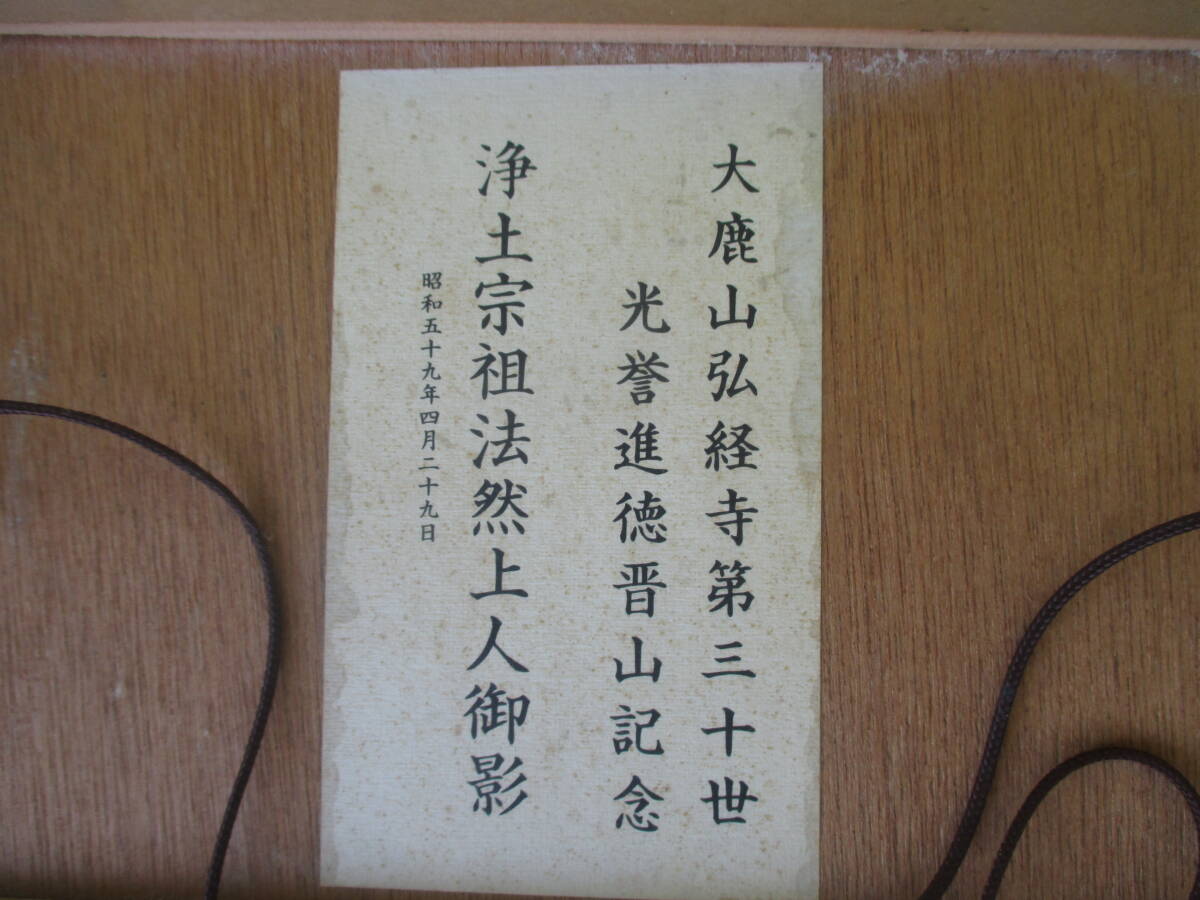 大鹿山弘経寺第三十世
光誉進徳晋山記念
浄土宗祖法然上人御影
昭和五十九年四月二十九日